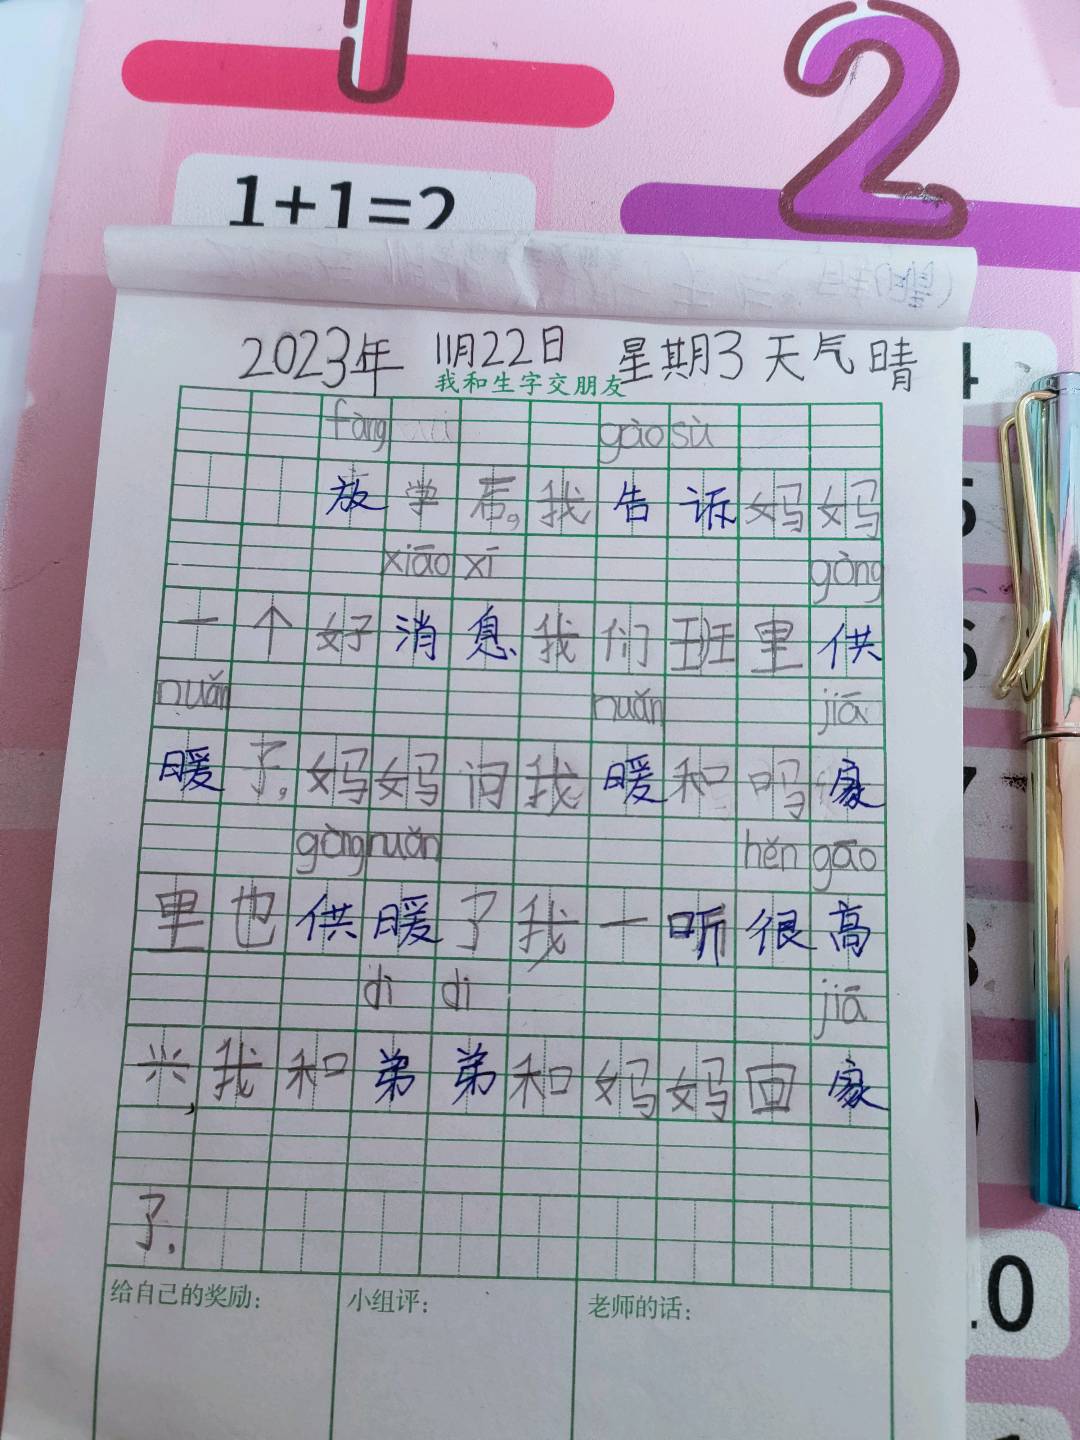 1
2
1+1=2
2023年 11月22日 星期3 天气晴
我和生字交朋友
fàng gào sù
放学后,我告诉妈妈
xiāo xī gòng
一个好消息我们班里供
nuǎn nuǎn jiā
暖了,妈妈问我暖和吗家
gòng nuǎn hěn gāo
里也供暖了我一听很高
dì dì jiā
兴,我和弟弟和妈妈回家
了.
给自己的奖励: 小组评: 老师的话:
4
5
6
7
8
9
10